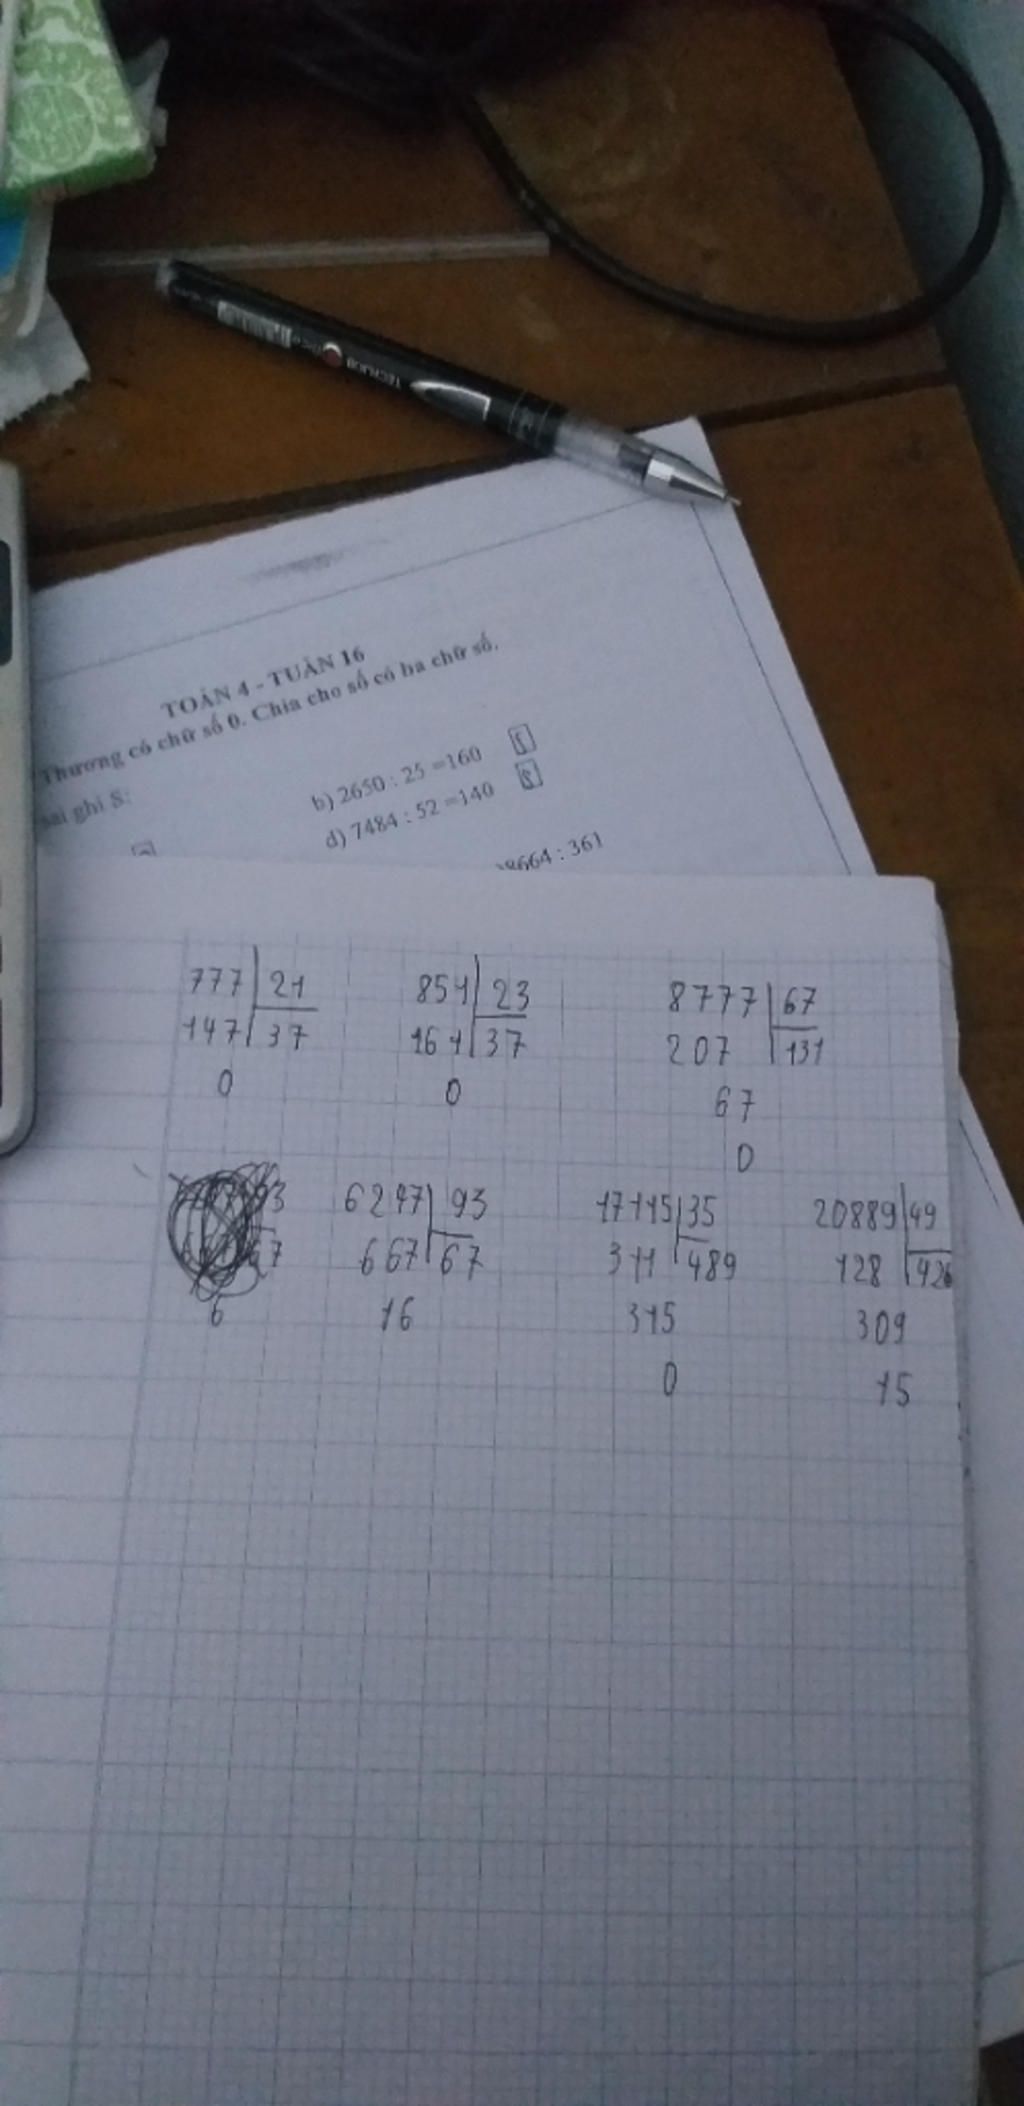 TOÁN 4 - TUẦN 16
Thương có chữ số 0. Chia cho số có ba chữ số.
sai ghi S:
b) 2650 : 25 =160
d) 7484 : 52 =140 S
8664 : 361
777 21 851 23 8777 67
147 37 161 37 207 131
0 0 67
0
93 6247 93 17115 35 20889 49
67 667 67 311 489 128 426
6 16 315 309
0 15